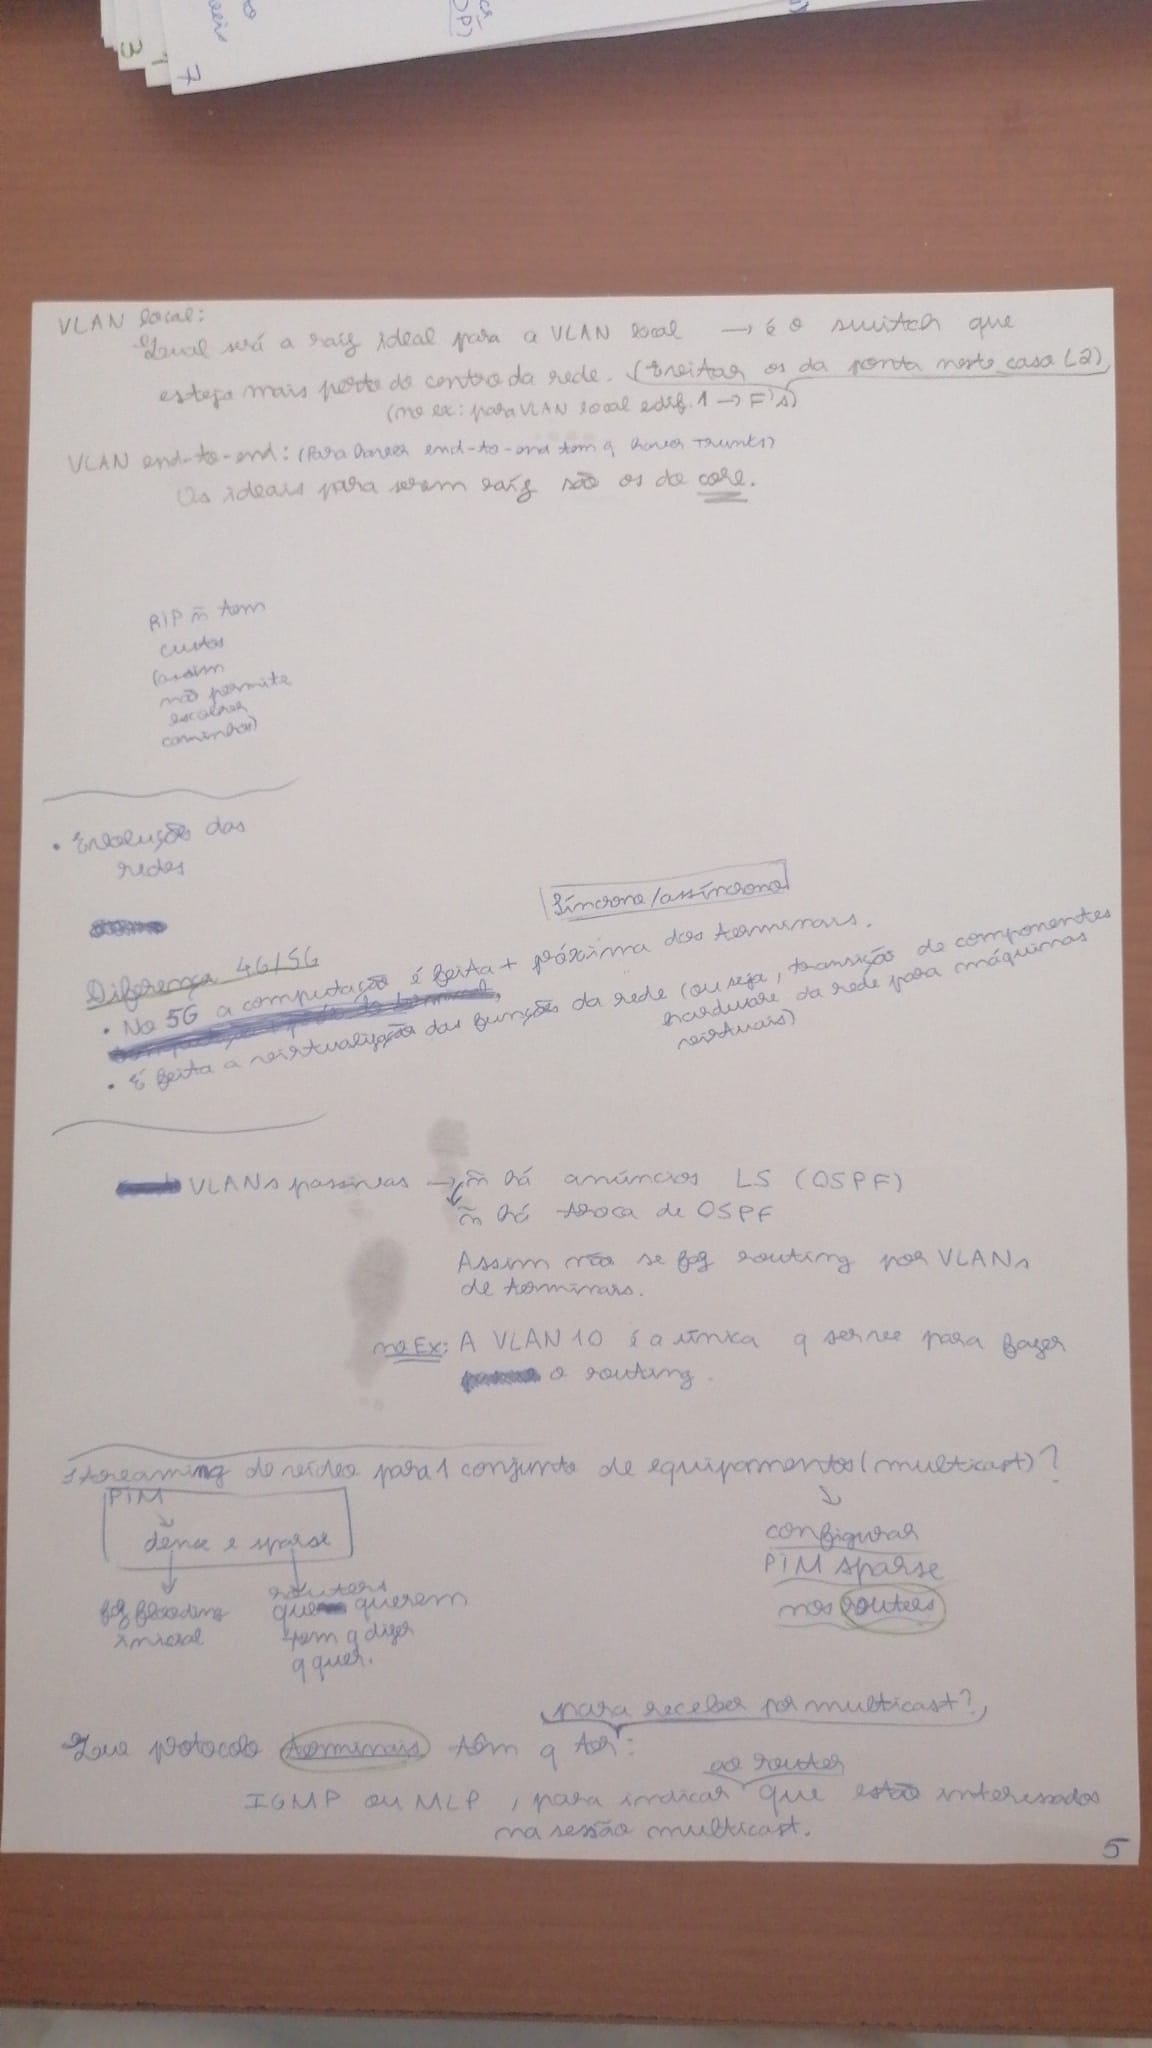 7
3
VLAN local:
Qual será a raiz ideal para a VLAN local → é o switch que
esteja mais perto do centro da rede. (Evitar os da ponta neste caso L2)
(no ex: para VLAN local edif. 1 → F's)
VLAN end-to-end: (Para haver end-to-end tem q haver Trunks)
Os ideais para serem raiz são os do core.
RIP ñ tem
custos
(assim
não permite
escolher
caminhos)
• Evolução das
redes
Síncrona/assíncrona
Diferença 4G/5G
• No 5G a computação é feita + próxima dos terminais.
• É feita a virtualização das funções da rede (ou seja, transição de componentes
hardware da rede para máquinas
virtuais)
VLANs passivas → ñ há anúncios LS (OSPF)
ñ há troca de OSPF
Assim não se faz routing por VLANs
de terminais.
no Ex: A VLAN 10 é a única q serve para fazer
o routing.
Streaming de vídeo para 1 conjunto de equipamentos (multicast)?
PIM
dense e sparse
faz flooding
inicial
routers
que querem
tem q dizer
q quer.
configurar
PIM sparse
nos routers
para receber por multicast?
Que protocolo terminais têm q ter:
ao router
IGMP ou MLP, para indicar que estão interessados
na sessão multicast.
5